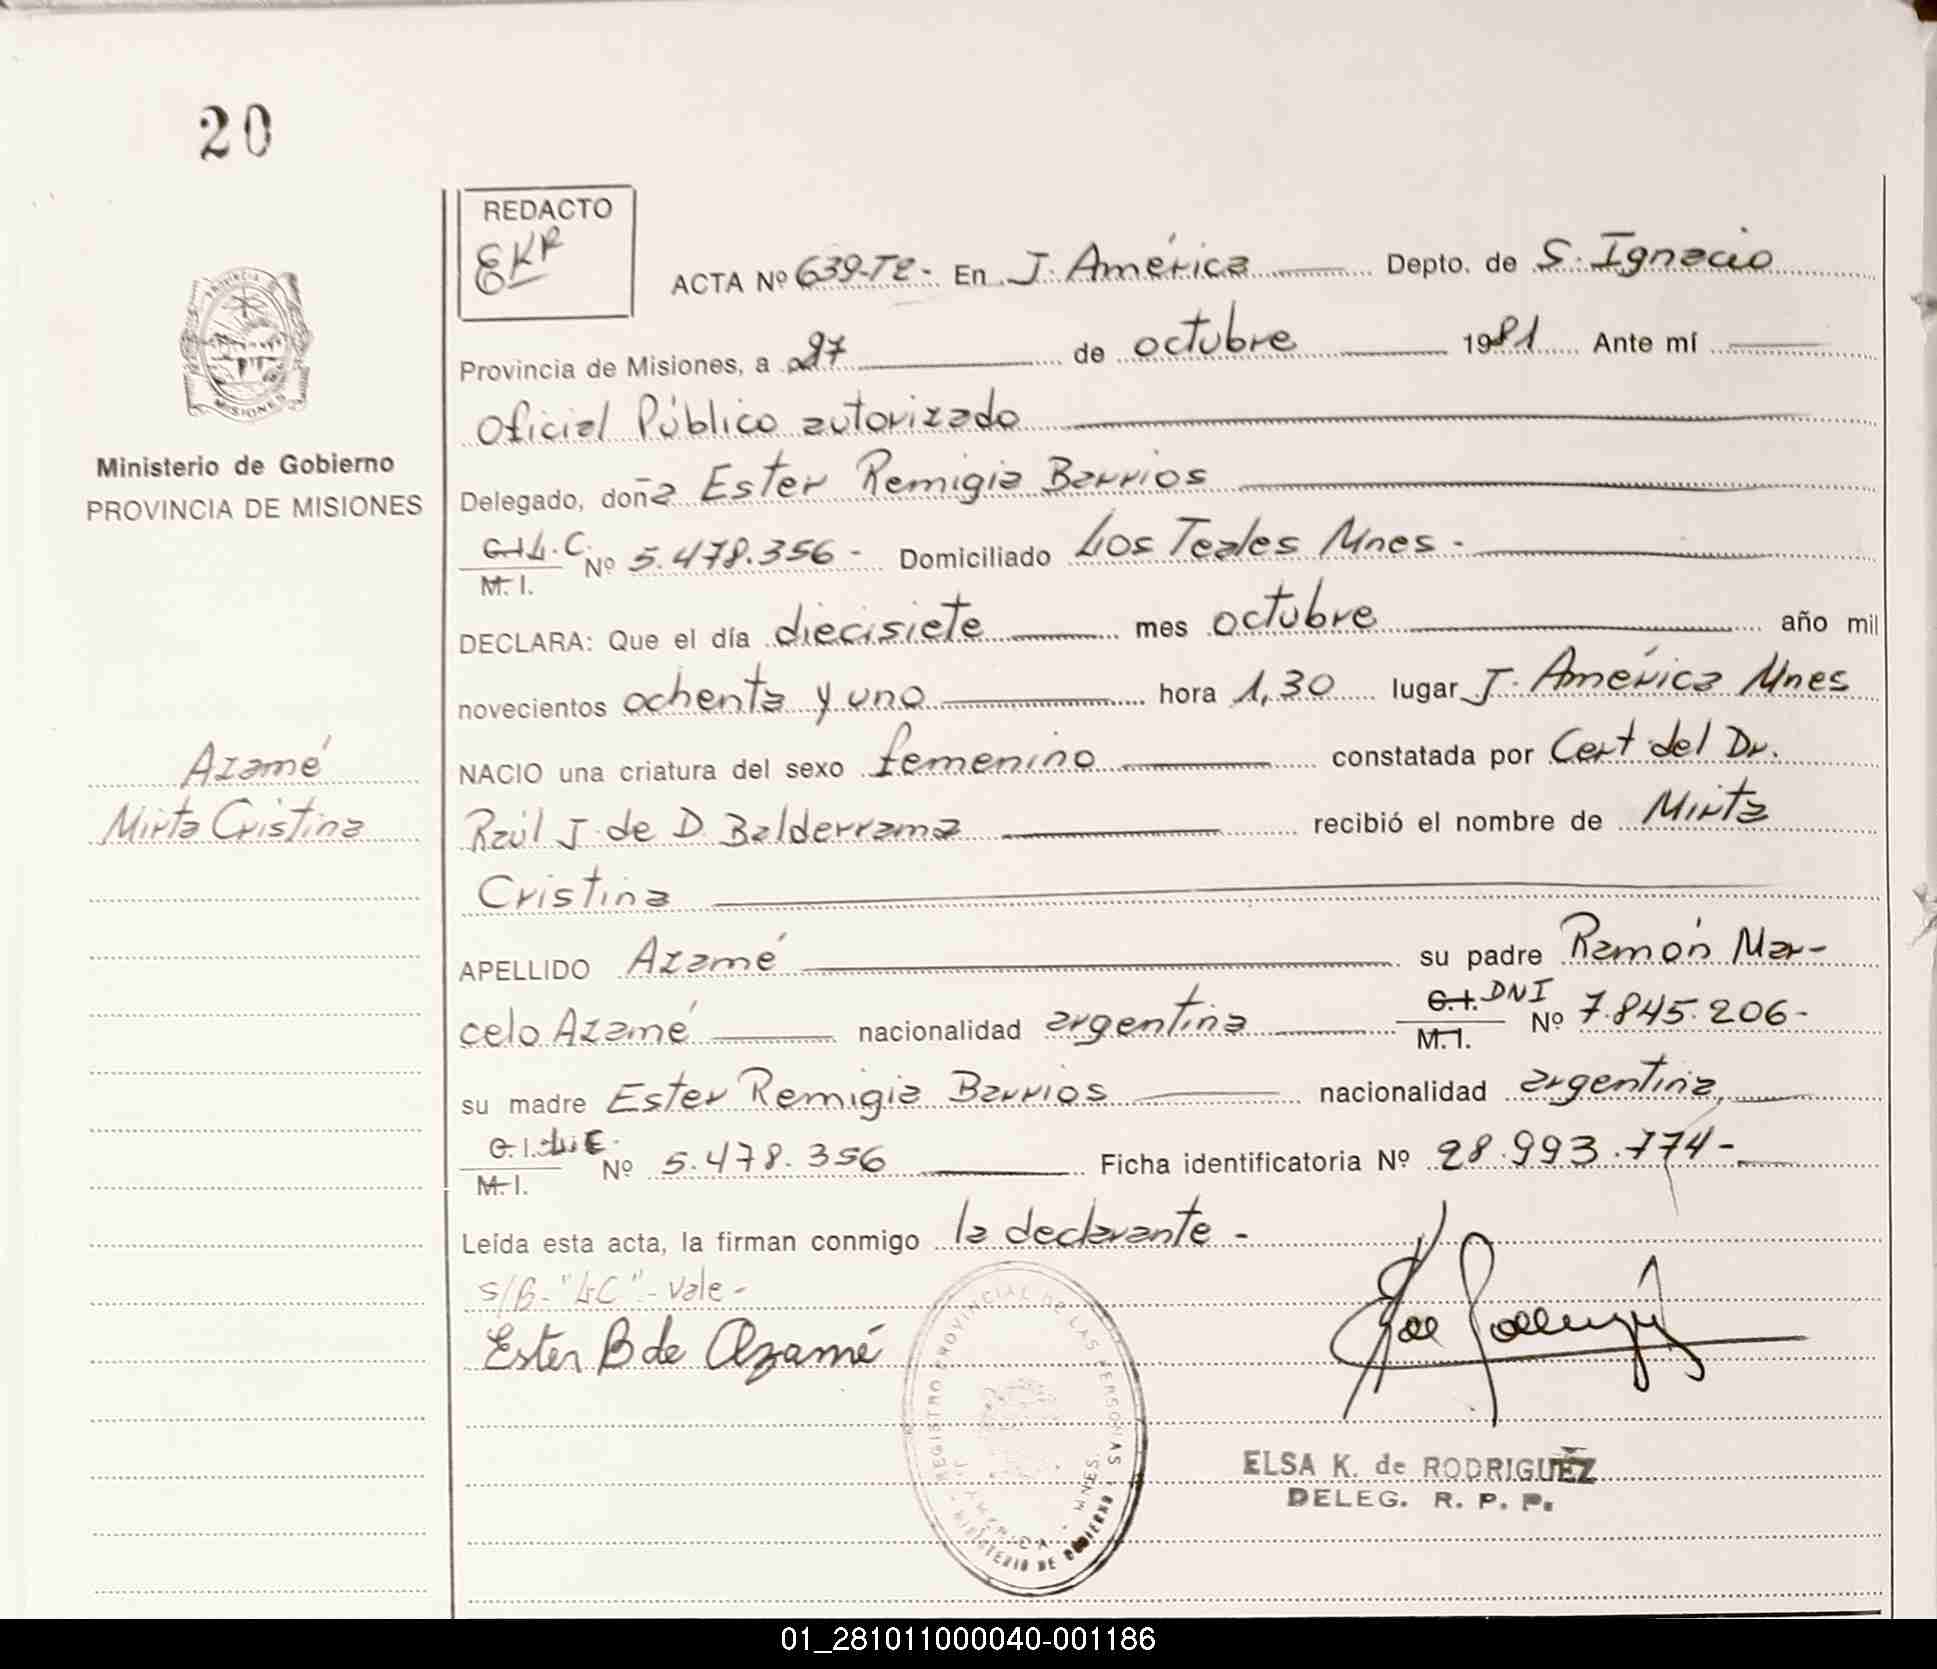 20
REDACTO
EKR
ACTA Nº 639-TE- En J. América Depto. de S. Ignacio
Provincia de Misiones, a 27 de octubre 1981 Ante mí
Oficial Público autorizado
Ministerio de Gobierno
PROVINCIA DE MISIONES
Delegado, doña Ester Remigia Barrios
C.I. L.C. Nº 5.478.356- Domiciliado Los Teales Mnes-
M.I.
DECLARA: Que el día diecisiete mes octubre año mil
novecientos ochenta y uno hora 1,30 lugar J. América Mnes
Azamé
NACIO una criatura del sexo femenino constatada por Cert del Dr.
Mirta Cristina
Raúl J. de D. Balderrama recibió el nombre de Mirta
Cristina
APELLIDO Azamé su padre Ramón Mar-
celo Azamé nacionalidad argentina C.I. DNI Nº 7.845.206-
M.I.
su madre Ester Remigia Barrios nacionalidad argentina,
C.I. Nº 5.478.356 Ficha identificatoria Nº 28.993.774-
M.I.
Leída esta acta, la firman conmigo la declarante-
S/B- "LC"- Vale-
Ester B de Azamé
REGISTRO PROVINCIAL DE LAS PERSONAS
J. AMERICA - MNES.
MINISTERIO DE GOBIERNO
ELSA K. de RODRIGUEZ
DELEG. R. P. P.
01_281011000040-001186